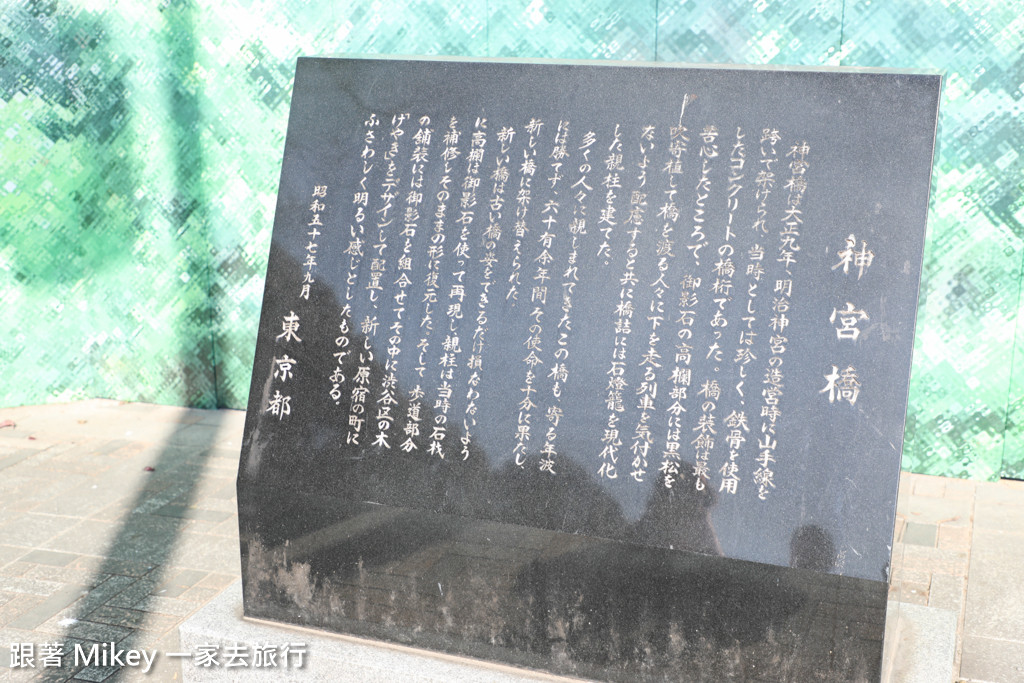 神宮橋
神宮橋は大正九年、明治神宮の造営時に山手線を
跨いで架けられ、当時としては珍しく、鉄骨を使用
したコンクリートの橋桁であった。橋の装飾は最も
苦心したところで、御影石の高欄部分には黒松を
吹寄植して橋を渡る人々に下を走る列車を気付かせ
ないよう配慮すると共に橋詰には石燈籠を現代化
した親柱を建てた。
多くの人々に親しまれてきたこの橋も、寄る年波
には勝てず、六十有余年間その使命を十分に果たし、
新しい橋に架け替えられた。
新しい橋は古い橋の姿をできるだけ損なわないよう
に高欄は御影石を使って再現し、親柱は当時の石材
を補修しそのままの形で復元した。そして、歩道部分
の舗装には御影石を組合せてその中に渋谷区の木
"けやき"をデザインして配置し、新しい原宿の町に
ふさわしく明るい感じとしたものである。
昭和五十七年九月
東京都
跟著 Mikey 一家去旅行